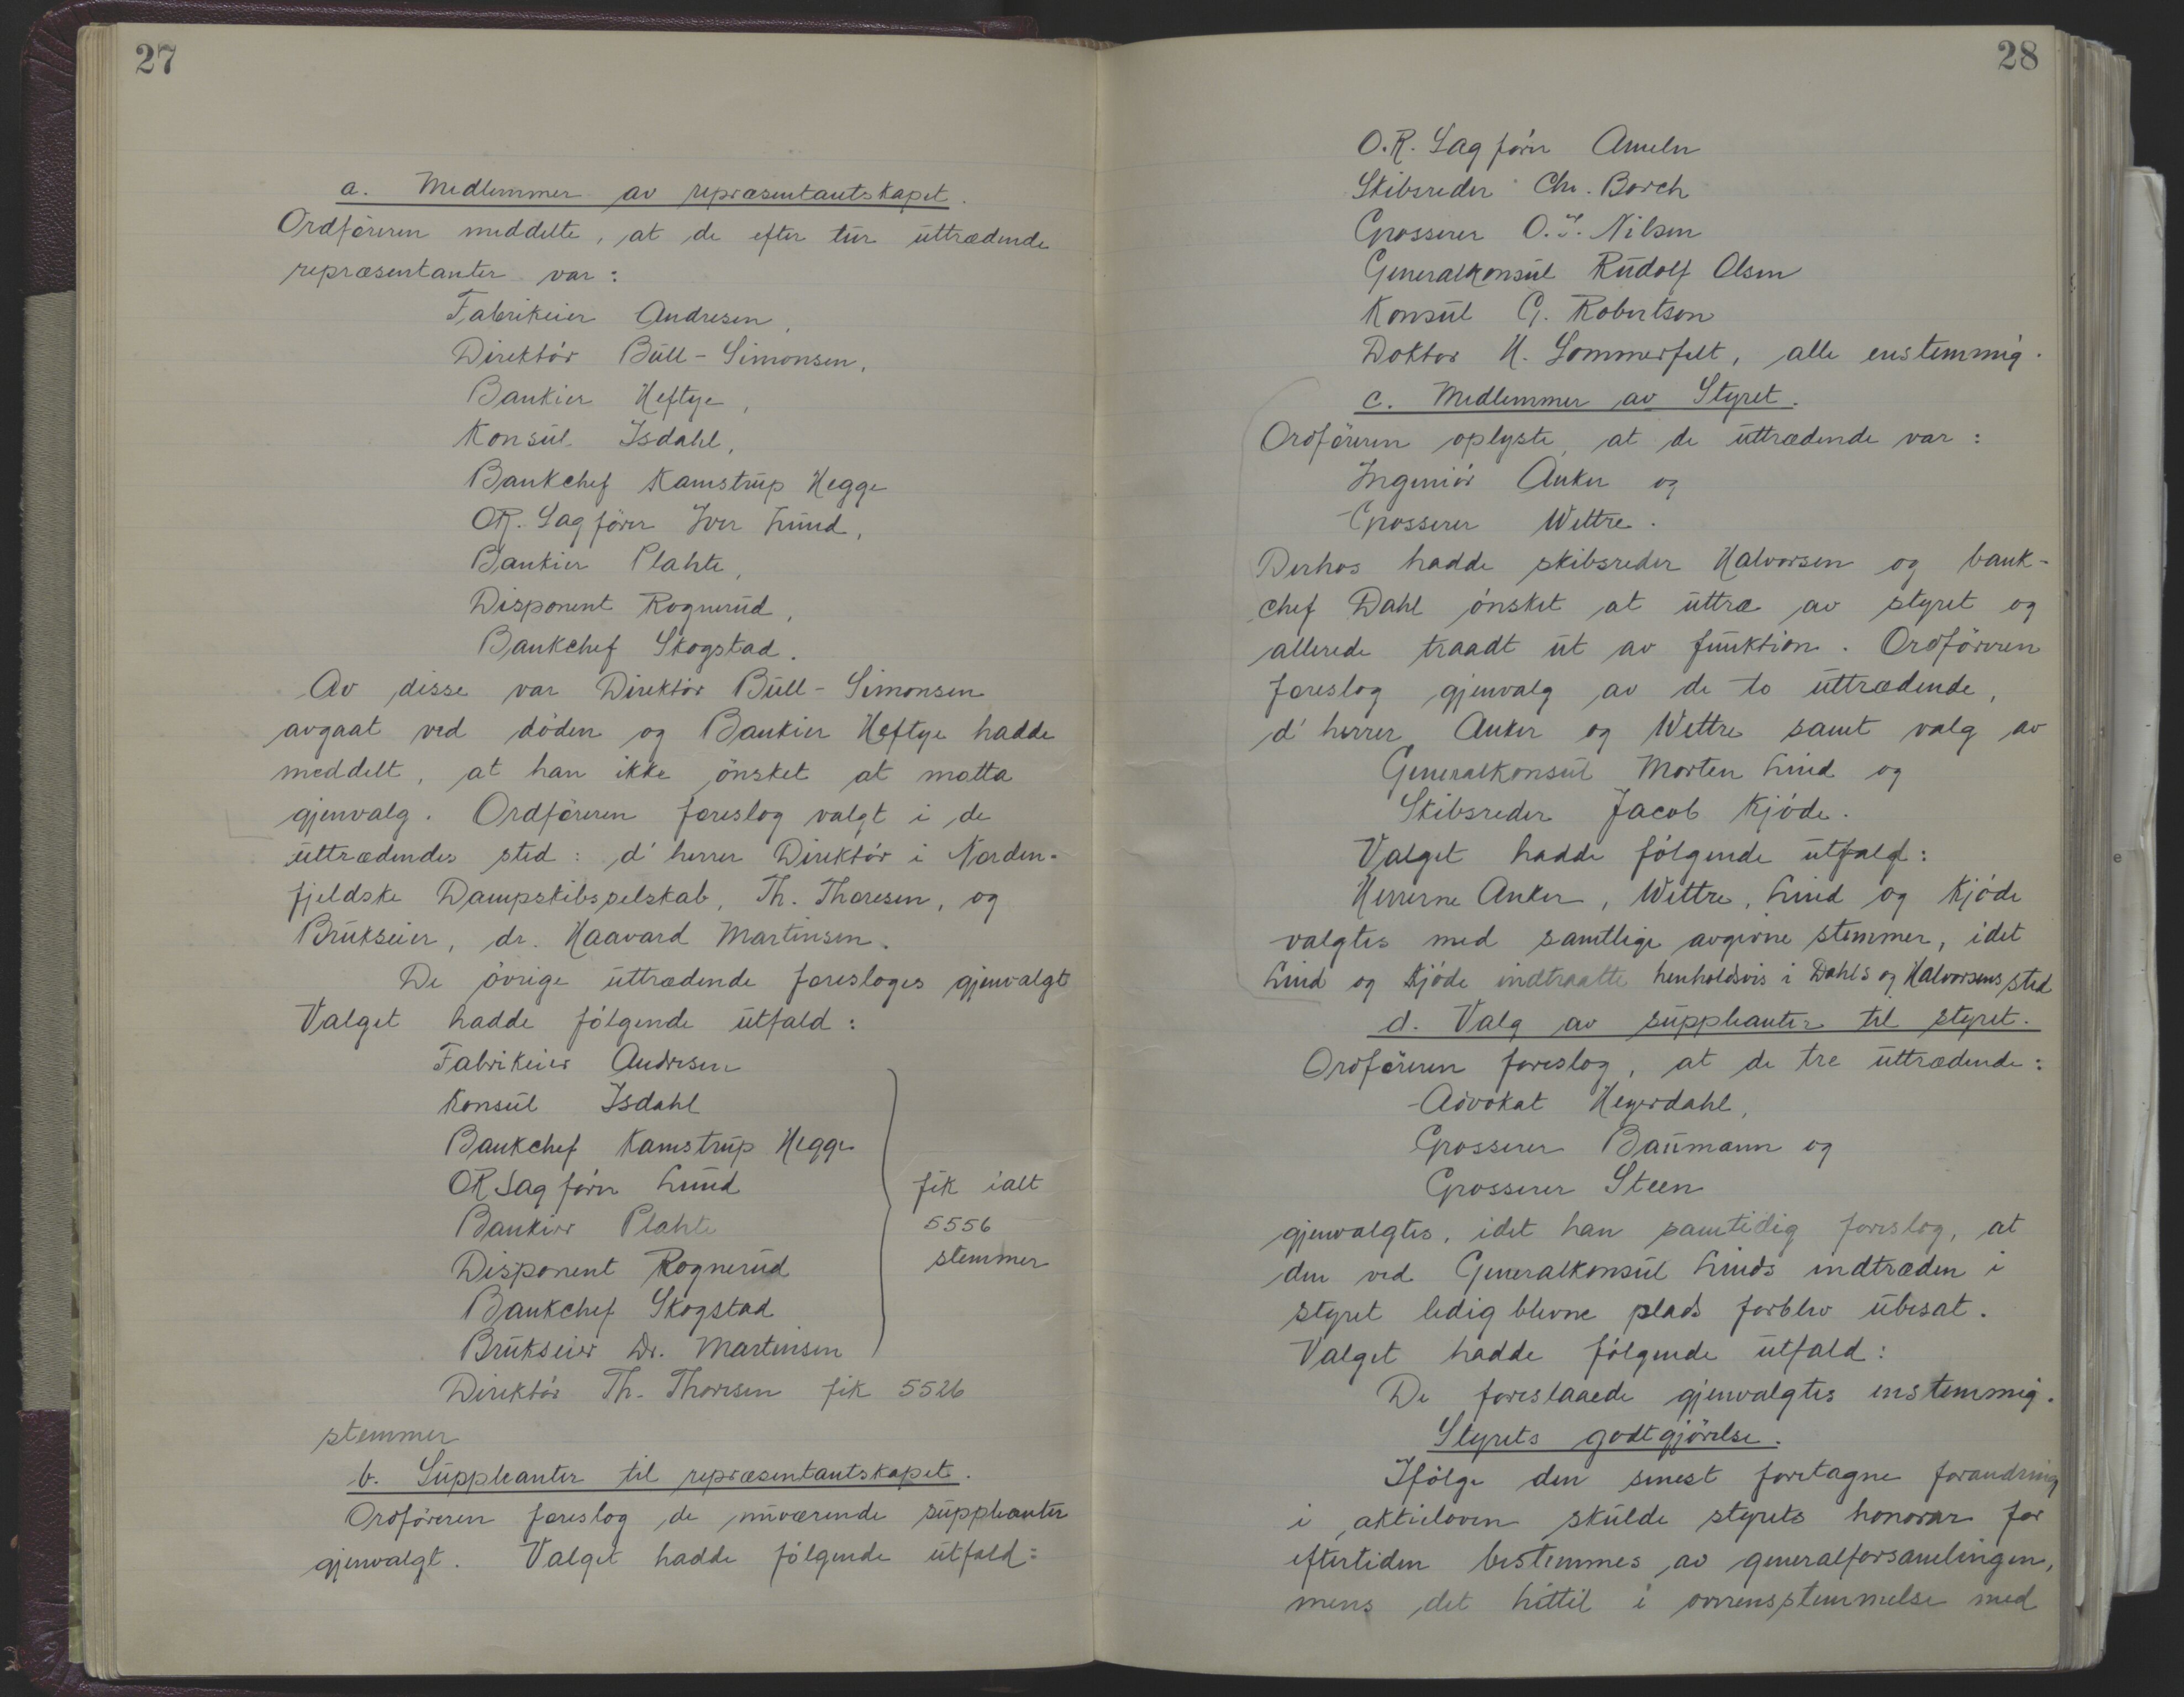 27
a. Medlemmer av repræsentantskapet.
Ordføreren meddelte, at de efter tur uttrædende
repræsentanter var:
Fabrikeier Andresen,
Direktör Bull-Simonsen,
Bankier Heftye,
Konsul Isdahl,
Bankchef Kamstrup Hegge
OR. Sagförer Iver Lund,
Bankier Plahte,
Disponent Rognerud,
Bankchef Skogstad.
Av disse var Direktör Bull-Simonsen
avgaat ved döden og Bankier Heftye hadde
meddelt, at han ikke önsket at motta
gjenvalg. Ordföreren foreslog valgt i de
uttrædendes sted: d'herrer Direktör i Norden-
fjeldske Dampskibsselskab, Th. Thoresen, og
Brukseier, dr. Haavard Martinsen.
De övrige uttrædende foresloges gjenvalgt
Valget hadde fölgende utfald:
Fabrikeier Andresen
Konsul Isdahl
Bankchef Kamstrup Hegge
OR Sagförer Lund
Bankier Plahte
Disponent Rognerud
Bankchef Skogstad
Brukseier Dr. Martinsen
fik ialt
5556
stemmer
Direktör Th. Thoresen fik 5526
stemmer
b. Suppleanter til repræsentantskapet.
Ordföreren foreslog de nuværende suppleanter
gjenvalgt. Valget hadde fölgende utfald:
28
O.R. Sagförer Ameln
Skibsreder Chr. Borch
Grosserer O.J. Nilsen
Generalkonsul Rudolf Olsen
Konsul G. Robertson
Doktor H. Sommerfelt, alle enstemmig.
c. Medlemmer av Styret.
Ordföreren oplyste, at de uttrædende var:
Ingeniör Anker og
Grosserer Wettre.
Derhos hadde skibsreder Halvorsen og bank-
chef Dahl önsket at uttræ av styret og
allerede traadt ut av funktion. Ordföreren
foreslog gjenvalg av de to uttrædende,
d'herrer Anker og Wettre samt valg av
Generalkonsul Morten Lind og
Skibsreder Jacob Kjöde.
Valget hadde fölgende utfald:
Herrerne Anker, Wettre, Lind og Kjöde
valgtes med samtlige avgivne stemmer, idet
Lind og Kjöde indtraatte henholdsvis i Dahls og Halvorsens sted
d. Valg av suppleanter til styret.
Ordföreren foreslog, at de tre uttrædende:
Advokat Heyerdahl,
Grosserer Baumann og
Grosserer Steen
gjenvalgtes, idet han samtidig foreslog, at
den ved Generalkonsul Linds indtræden i
styret ledig blevne plads forblev ubesat.
Valget hadde fölgende utfald:
De foreslaaede gjenvalgtes enstemmig.
Styrets godtgjörelse.
Ifölge den senest foretagne forandring
i aktieloven skulde styrets honorar for
eftertiden bestemmes av generalforsamlingen,
mens det hittil i overensstemmelse med